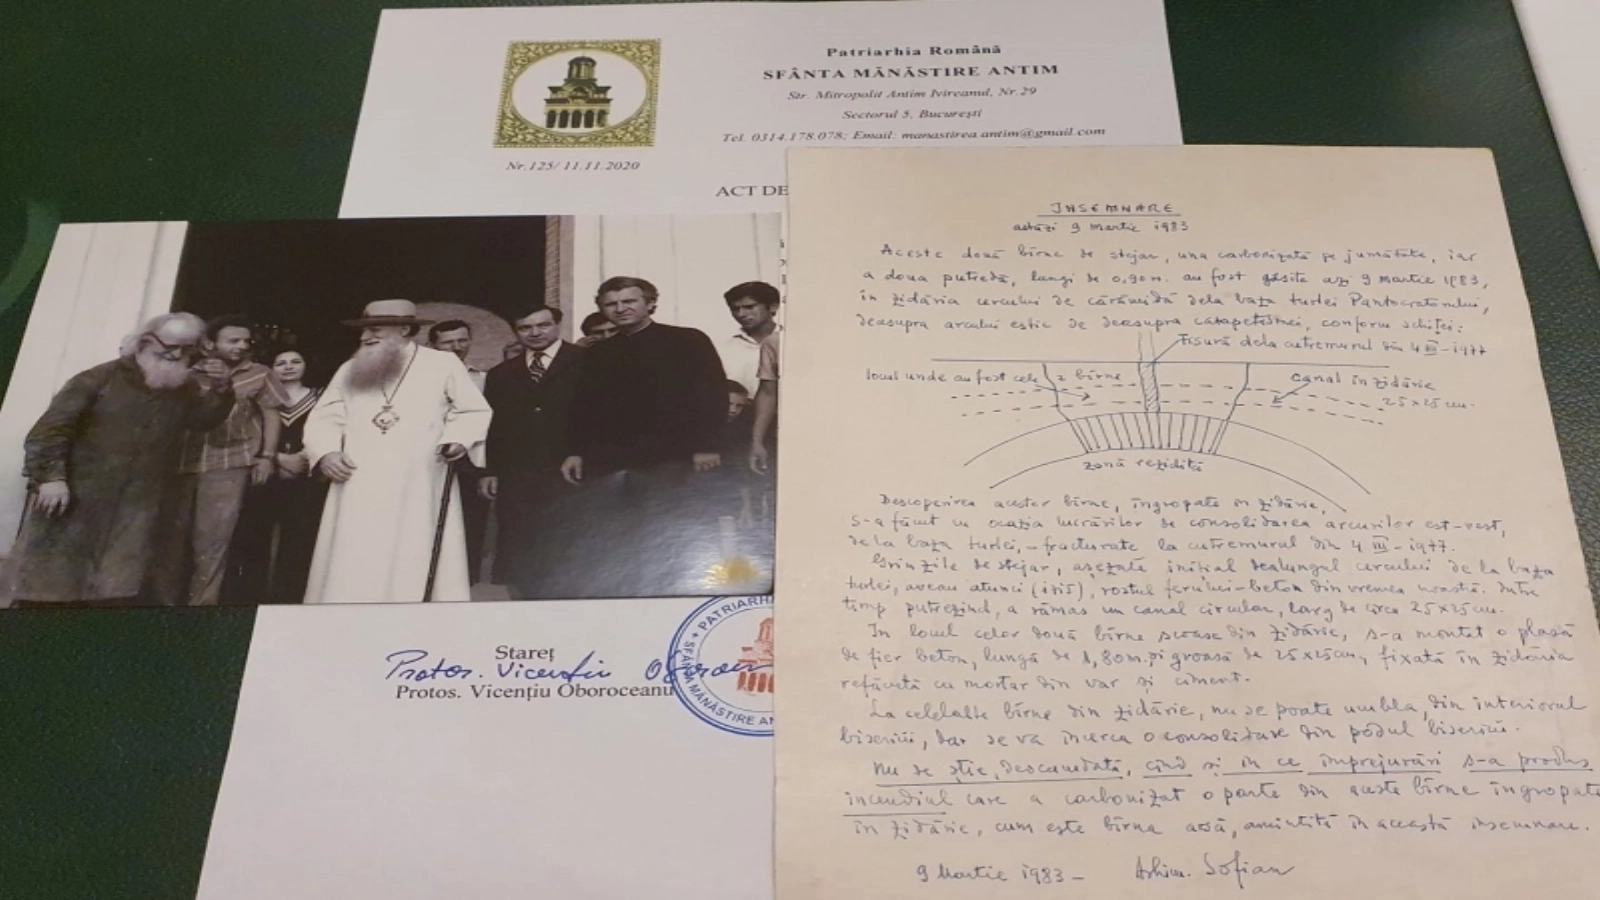 Patriarhia Română
SFÂNTA MĂNĂSTIRE ANTIM
Str. Mitropolit Antim Ivireanul, Nr.29
Sectorul 5, București
Tel. 0314.178.078; Email: manastirea.antim@gmail.com
Nr.125/ 11.11.2020
ACT DE
Stareț
Protos. Vicențiu
Protos. Vicențiu Oboroceanu
PATRIARH
SFÂNTA MĂNĂSTIRE AN
ÎNSEMNARE
astăzi 9 martie 1983
Aceste două bîrne de stejar, una carbonizată pe jumătate, iar
a doua putredă, lungi de 0,90 m. au fost găsite azi 9 martie 1983,
în zidăria cercului de cărămidă dela baza turlei Pantocratorului,
deasupra arcului estic de deasupra catapetesmei, conform schiței:
Fisură dela cutremurul din 4 III-1977
locul unde au fost cele 2 bîrne
canal în zidărie
25x25 cm.
zonă rezidită
Descoperirea acestor bîrne, îngropate în zidărie,
s-a făcut cu ocazia lucrărilor de consolidarea arcurilor est-vest,
de la baza turlei, - fracturate la cutremurul din 4 III-1977.
Grinzile de stejar, așezate inițial dealungul cercului de la baza
turlei, aveau atunci (1715), rostul ferului-beton din vremea noastră. Între
timp putrezind, a rămas un canal circular, larg de circa 25x25 cm.
În locul celor două bîrne scoase din zidărie, s-a montat o plasă
de fier beton, lungă de 1,80 m. și groasă de 25x25 cm, fixată în zidăria
refăcută cu mortar din var și ciment.
La celelalte bîrne din zidărie, nu se poate umbla, din interiorul
bisericii, dar se va încerca o consolidare din podul bisericii.
Nu se știe, deocamdată, cînd și în ce împrejurări s-a produs
incendiul care a carbonizat o parte din aceste bîrne îngropate
în zidărie, cum este bîrna amintită în această însemnare.
9 Martie 1983 - Arhim. Sofian